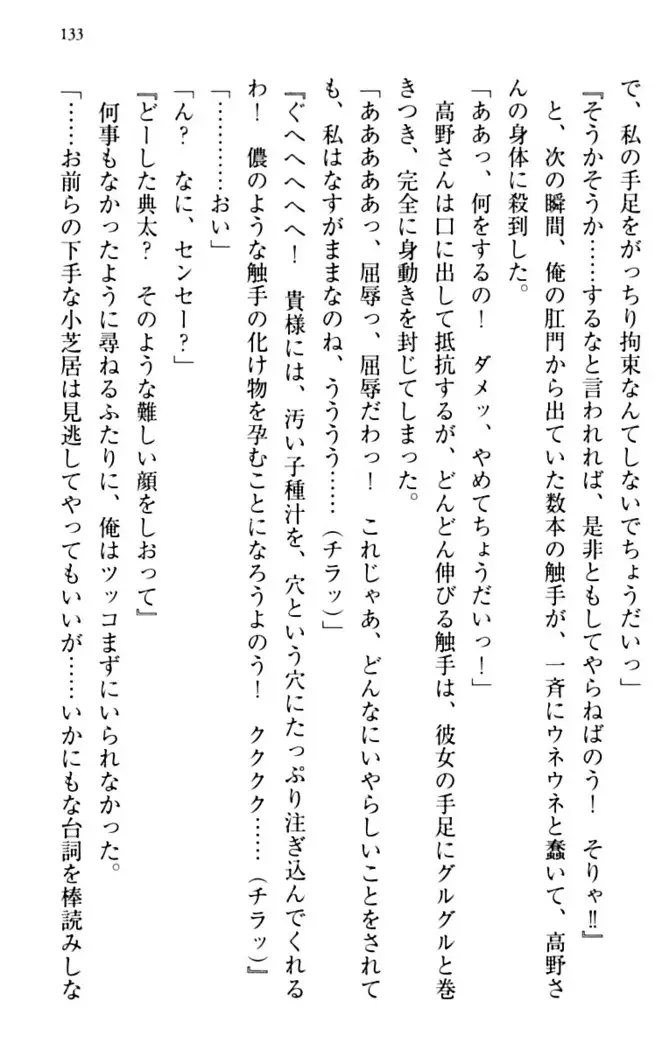 133
で、私の手足をがっちり拘束なんてしないでちょうだいっ」
『そうかそうか……するなと言われれば、是非ともしてやらねばのう！　そりゃ!!』
と、次の瞬間、俺の肛門から出ていた数本の触手が、一斉にウネウネと蠢いて、高野さ
んの身体に殺到した。
「ああっ、何をするの！　ダメッ、やめてちょうだいっ！」
高野さんは口に出して抵抗するが、どんどん伸びる触手は、彼女の手足にグルグルと巻
きつき、完全に身動きを封じてしまった。
「あああああっ、屈辱っ、屈辱だわっ！　これじゃあ、どんなにいやらしいことをされて
も、私はなすがままなのね、うううう……（チラッ）」
『ぐへへへへへ！　貴様には、汚い子種汁を、穴という穴にたっぷり注ぎ込んでくれる
わ！　儂のような触手の化け物を孕むことになろうよのう！　クククク……（チラッ）』
「…………おい」
「ん？　なに、センセー？」
『どーした典太？　そのような難しい顔をしおって』
何事もなかったように尋ねるふたりに、俺はツッコまずにいられなかった。
「……お前らの下手な小芝居は見逃してやってもいいが……いかにもな台詞を棒読みしな